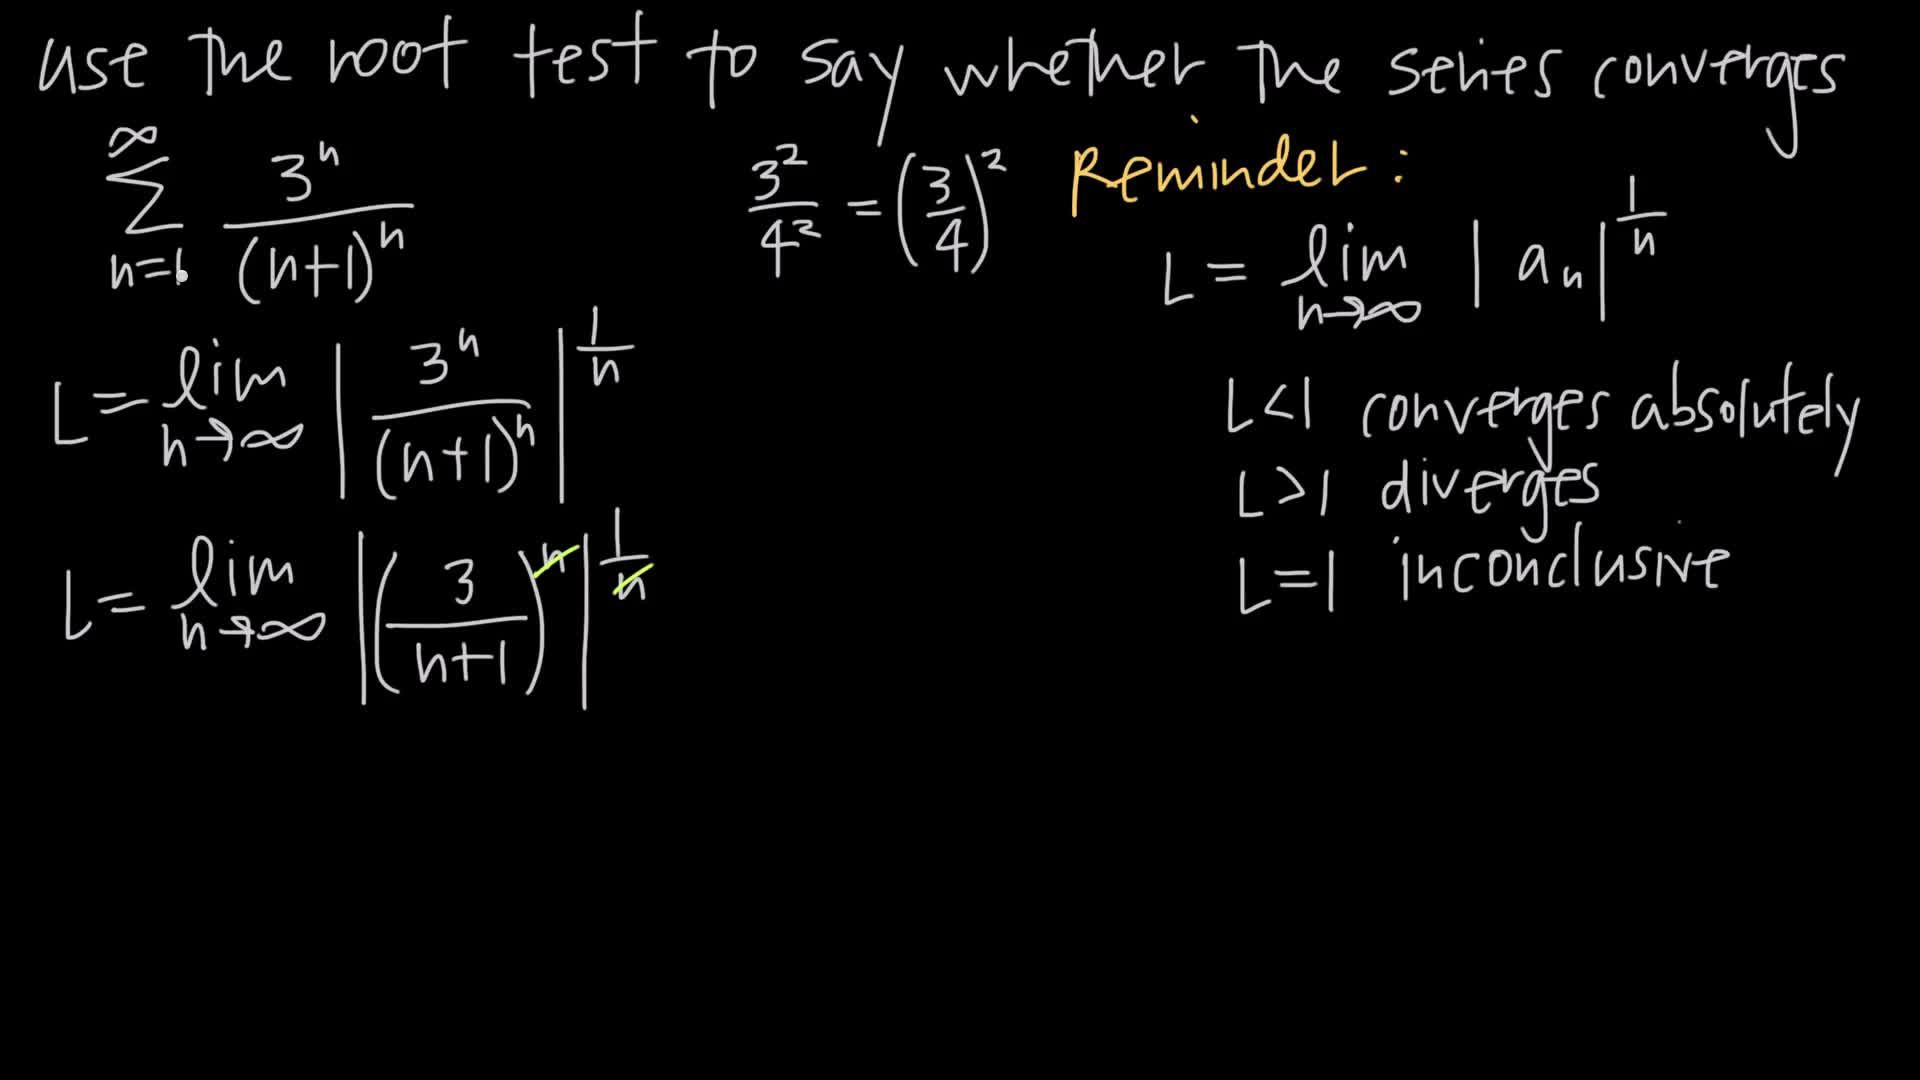 use the root test to say whether the series converges
∞
∑ 3^n / (n+1)^n
n=1
3^2 / 4^2 = (3/4)^2
Reminder:
L = lim |a_n|^(1/n)
n→∞
L<1 converges absolutely
L>1 diverges
L=1 inconclusive
L = lim |3^n / (n+1)^n|^(1/n)
n→∞
L = lim |(3 / n+1)^n|^(1/n)
n→∞